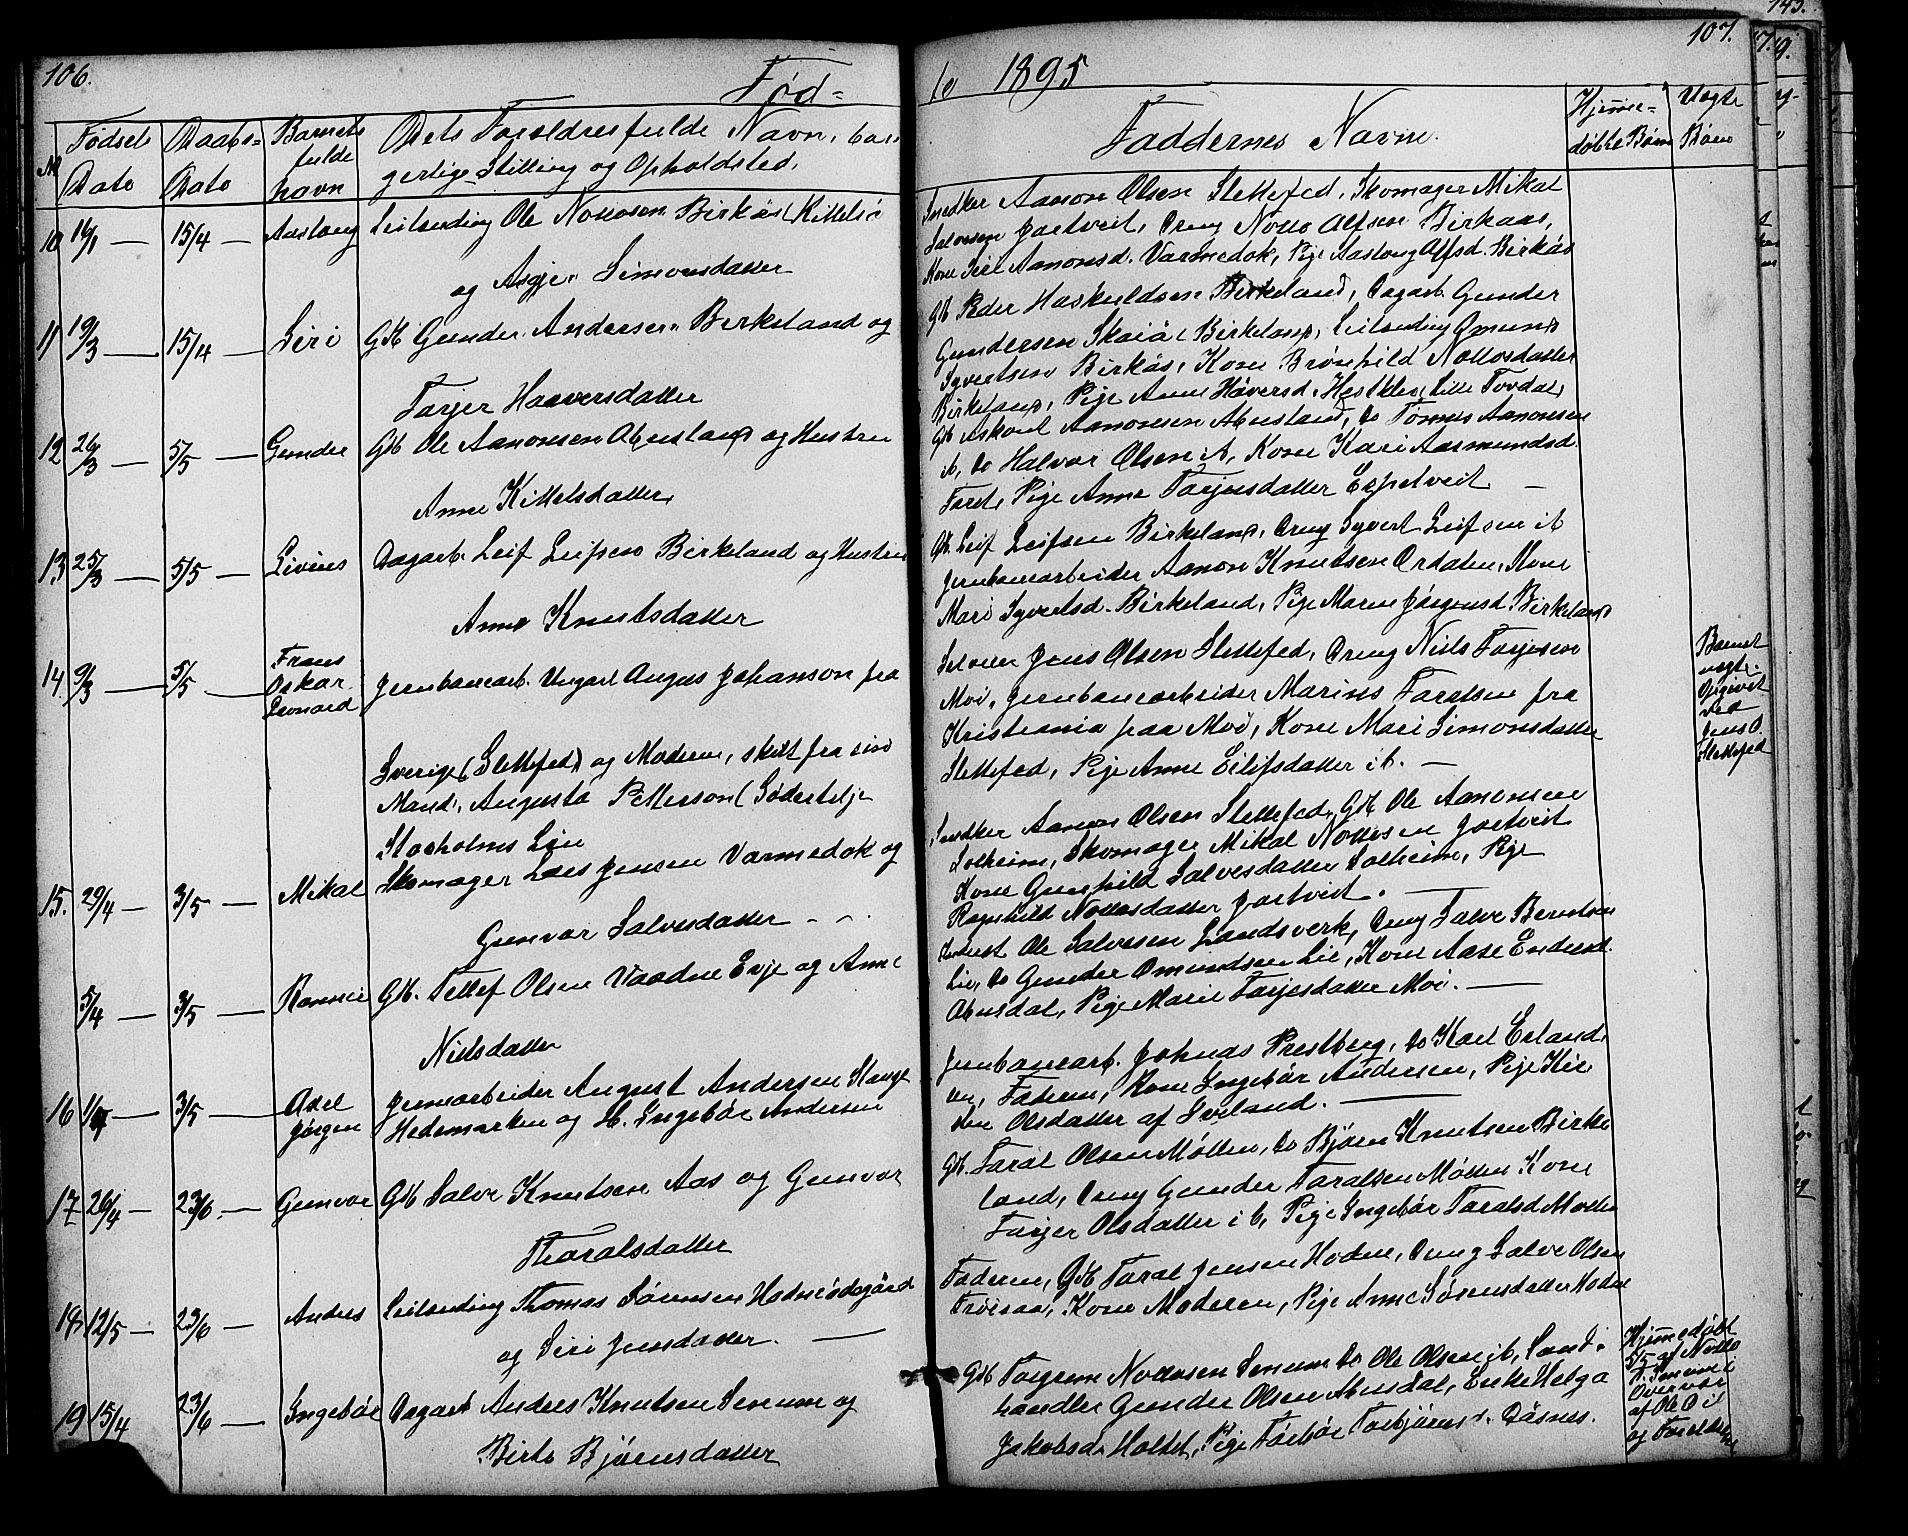 106.
Fød=
№
Fødsels
Dato
Daabs-
Dato
Barnets
fulde
navn
Dets Foreldres fulde Navn, bor-
gerlige Stilling og Opholdsted.
10 16/1 — 15/4 — Aaslaug Leilending Ole Nottosen Birkås (Kittelsø
og Asgjer Simonsdatter
11 19/3 — 15/4 — Siri Gdb Gunder Andersen Birkeland og
Tarjer Haaversdatter
12 26/3 — 5/5 — Gunder Gdb Ole Aanonsen Abusland og Hustru
Anne Kittelsdatter
13 25/3 — 5/5 — Livius Dagarb. Leif Leifsen Birkeland og Hustru
Anne Knutsdatter
14 9/3 — 5/5 — Frans
Oskar
Leonard
Jernbanearb. Ungkarl Johanson fra
Sverige (Slettefed) og Moderen, skilt fra sin
Mand, Augusta Petterson (Södertelje
Stocholms Län
15. 29/4 — 3/5 — Mikal Skomager Lars Jensen Varmedok og
Gunvor Salvesdatter - -
5/4 — 3/5 — Gdb. Tellef Olsen Vaadne Evje og Anne
Nielsdatter
16 — 3/5 — Axel
Jørgen
August Andersen Stange
Hedemarken og H. Ingebør Andersen
17 26/4 — 23/6 — Gunvor Gdb Salve Knutsen Aas og Gunvor
Tharalsdatter
18 12/5 — 23/6 — Anders Leilending Thomas Sørensen Hodneødegård
og Siri Jensdatter. —
19 15/4 — 23/6 — Ingebør Dagarb Anders Knutsen Senum og
Birte Bjørnsdatter
107.
1895
Faddernes Navne.
Hjemme-
døbte Børn
Uægte
Børn
Snedker Aanon Olsen Slettefed, Skomager Mikal
Salvesen Jortveit, Ung Notto Olsen Birkaas,
Kone Siri Aanonsd. Varmedok, Pige Aaslaug Olsd. Birkås
Gb Peder Haskuldsen Birkeland, Dagarb. Gunder
Gundersen Skaiå (Birkeland, Leilending Omund
Syvertsen Birkås, Kone Brønhild Nottosdatter
Birkeland, Pige Anne Håversd. Lille Tovdal
Gb Askout Aanonsen Abusland, do Tomas Aanonsen
ib, do Halvor Olsen ib, Kone Kari Aasmundsd
Pige Anne Tarjusdatter Espetveit —
Gb. Leif Leifsen Birkeland, Ung Syvert Leifsen ib
Jernbanearbeider Aanon Knutsen Ordalen, Kone
Mari Syvertsd. Birkeland, Pige Maren Jørgensd. Birkeland
Selveier Jens Olsen Slettefed, Ung Niels Tarjesen
Moi, Jernbanearbeider Marius Taralsen fra
Kristiania paa Moi, Kone Mari Simonsdatter
Slettefed, Pige Anne Eilifsdatter ib. —
Barnet
uægte.
Opgivet
ved
Jens O.
Slettefed
Snedker Aanon Olsen Slettefed, Gb Ole Aanonsen
Solheim, Skomager Mikal Nottosen Jortveit
Kone Gunhild Salvesdatter Solheim, Pige
Ragnhild Nottosdatter Jortveit. —
Ole Salvesen Landsverk, Ung Salve Berntsen
Lie, do Gunder Omundsen Lie, Kone Aase Endresd.
Abusdal, Pige Marie Tarjesdatter Moi. —
Jernbanearb. Johnas Prestberg, do Karl Erland-
Faderen, Kone Ingebør Andersen, Pige Kir
sten Olsdatter af Iveland. —
Gb. Taral Olsen Møllen, do Bjørn Knutsen Birke
land, Ung Gunder Taralsen Møllen Kone
Tarjer Olsdatter ib, Pige Ingebør Taralsd Møllen
Faderen, Gb Taral Jensen Hodne, Ung Salve Olsen
Frøisaa, Kone Moderen, Pige Anne Sørensdatter Hodne
Gb Torgrim Nottosen Senum do Ole Olsen ib, Land-
handler Gunder Olsen Abusdal, Enke Helga
Jakobsd. Holtet, Pige Torbør Torbjørnsd. Dåsnes.
Hjemmedøbt
5/5 af Notto
T. Senum i
Overvær
af Ole O ib
og Foreldrene